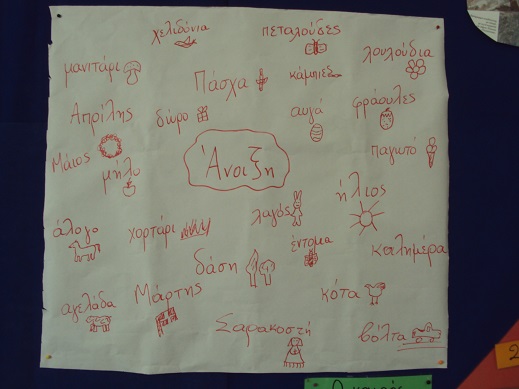 χελιδόνια
πεταλούδες
λουλούδια
μανιτάρι
Πάσχα
κάμπιες
Απρίλης
δώρο
αυγά
φράουλες
Μάιος
μήλο
Άνοιξη
παγωτό
ήλιος
λαγός
άλογο
χορτάρι
έντομα
καλημέρα
δάση
αγελάδα
Μάρτης
κότα
Σαρακοστή
βόλτα
2